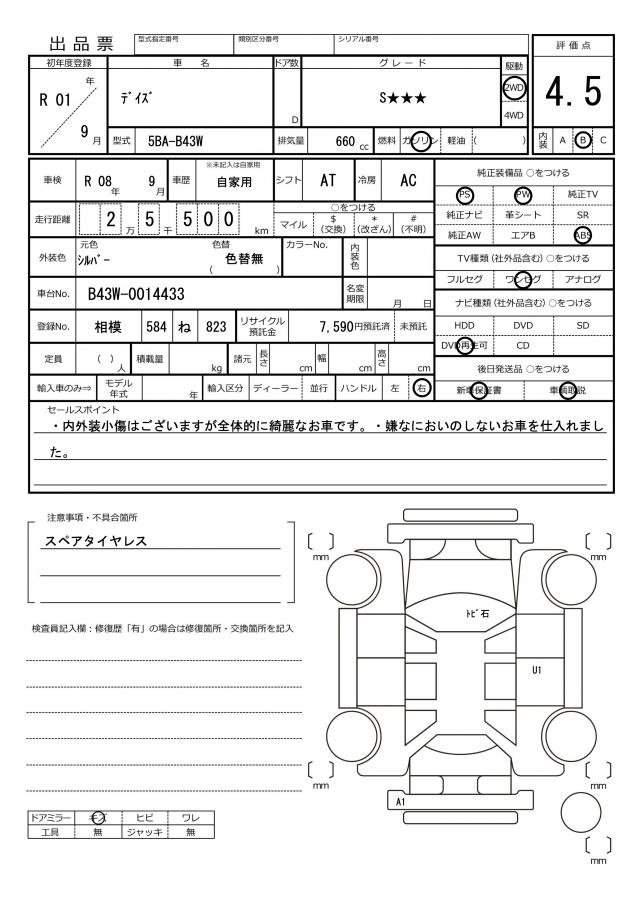 出品票
型式指定番号 類別区分番号 シリアル番号
評価点
4.5
内装 A B C
初年度登録 車名 ドア数 グレード 駆動
R 01 年 9 月 ﾃﾞｲｽﾞ D S★★★ 2WD 4WD
型式 5BA-B43W 排気量 660 cc 燃料 ガソリン 軽油 ( )
車検 R 08 年 9 月 車歴 ※未記入は自家用 自家用 シフト AT 冷房 AC
走行距離 2 万 5 千 5 0 0 km
○をつける
マイル $(交換) *(改ざん) #(不明)
外装色 元色 ｼﾙﾊﾞｰ 色替 ( 色替無 ) カラーNo. 内装色
車台No. B43W-0014433 名変期限 月 日
登録No. 相模 584 ね 823 リサイクル預託金 7,590円預託済 未預託
定員 ( ) 人 積載量 kg 諸元 長さ cm 幅 cm 高さ cm
輸入車のみ⇒ モデル年式 年 輸入区分 ディーラー 並行 ハンドル 左 右
純正装備品 ○をつける
PS PW 純正TV
純正ナビ 革シート SR
純正AW エアB ABS
TV種類 (社外品含む) ○をつける
フルセグ ワンセグ アナログ
ナビ種類 (社外品含む) ○をつける
HDD DVD SD
DVD再生可 CD
後日発送品 ○をつける
新車保証書 車輌取説
セールスポイント
・内外装小傷はございますが全体的に綺麗なお車です。・嫌なにおいのしないお車を仕入れまし
た。
注意事項・不具合箇所
スペアタイヤレス
検査員記入欄：修復歴「有」の場合は修復箇所・交換箇所を記入
mm mm
ﾄﾋﾞ石
U1
mm mm
A1
mm
ドアミラー キズ ヒビ ワレ
工具 無 ジャッキ 無